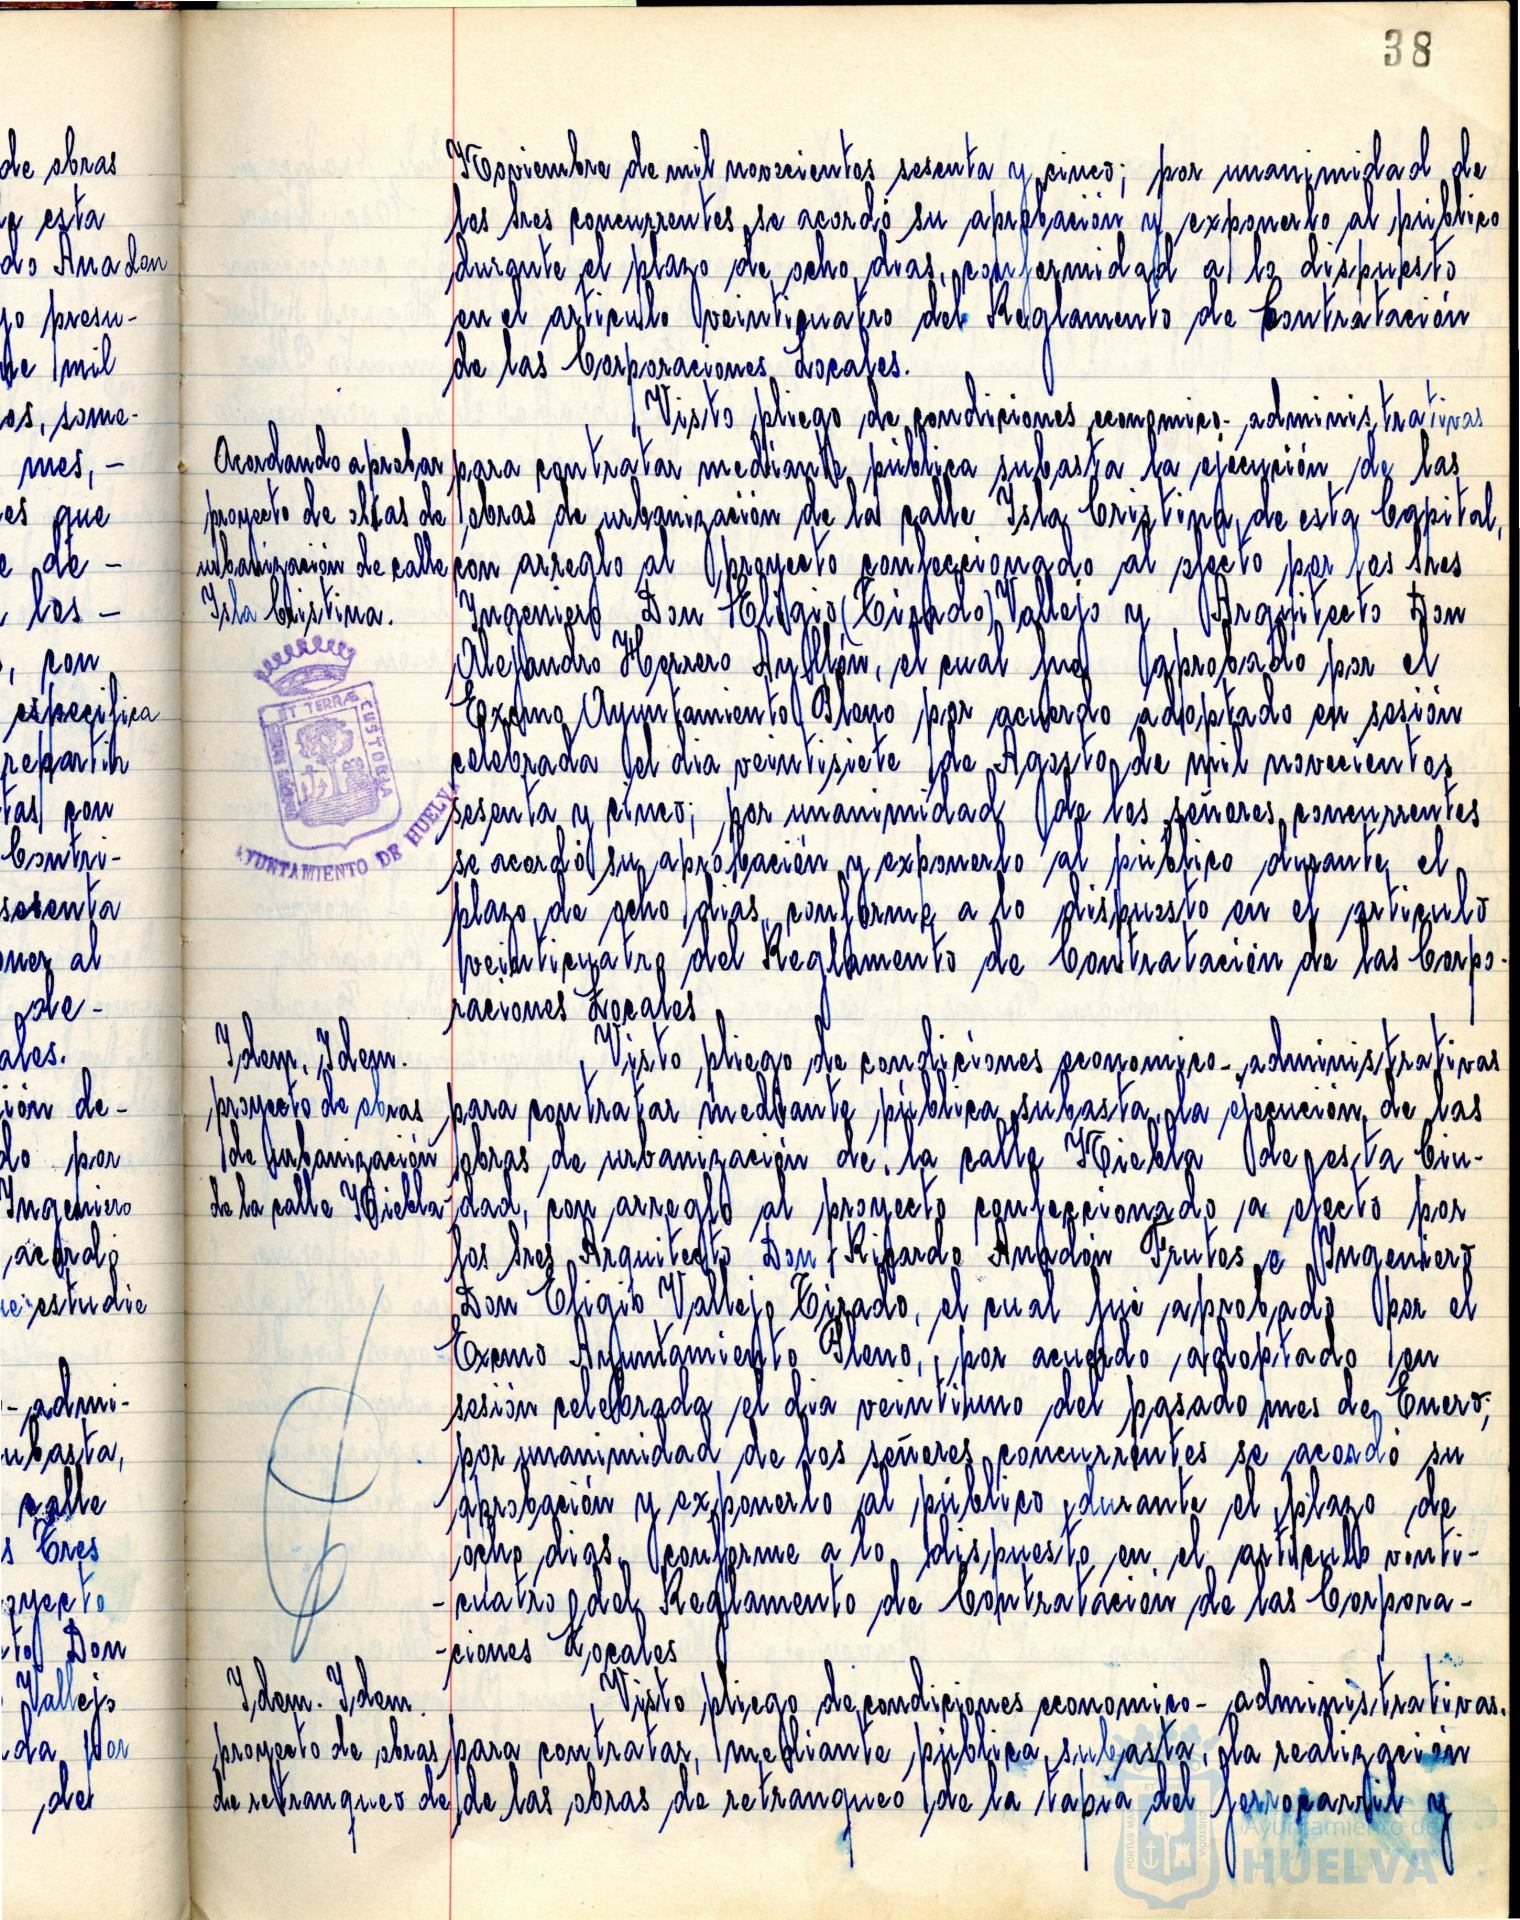 38
de obras
esta
do Anadon
yo presu-
de mil
os, some-
mes, -
es que
e de -
los -
, con
especifica
repartir
tas con
Contri-
sesenta
oner al
de -
ales.
ión de-
do por
Ingeniero
acordó
estudie
- admi-
ubasta,
calle
s Tres
oyecto
to Don
Vallejo
da por
de
Noviembre de mil novecientos sesenta y cinco; por unanimidad de
los Sres concurrentes se acordó su aprobación y exponerlo al público
durante el plazo de ocho dias, conformidad a lo dispuesto
en el articulo veinticuatro del Reglamento de Contratación
de las Corporaciones Locales.
Acordando aprobar
proyecto de obras de
urbanización de calle
Isla Cristina.
Visto pliego de condiciones economico- administrativas
para contratar mediante pública subasta la ejecución de las
obras de urbanización de la calle Isla Cristina, de esta Capital,
con arreglo al proyecto confeccionado al efecto por los Sres
Ingeniero Don Eligio (Tirado) Vallejo y Arquitecto Don
Alejandro Herrero Ayllón, el cual fue aprobado por el
Excmo Ayuntamiento Pleno por acuerdo adoptado en sesión
celebrada el dia veintisiete de Agosto de mil novecientos
sesenta y cinco; por unanimidad de los señores concurrentes
se acordó su aprobación y exponerlo al público durante el
plazo de ocho dias, conforme a lo dispuesto en el articulo
veinticuatro del Reglamento de Contratación de las Corpo-
raciones Locales
ET TERRAE CUSTODIA
PORTUS MARIS
AYUNTAMIENTO DE HUELVA
Idem. Idem.
proyecto de obras
de urbanización
de la calle Niebla
Visto pliego de condiciones economico- administrativas
para contratar mediante pública subasta la ejecución de las
obras de urbanización de la calle Niebla de esta Ciu-
dad, con arreglo al proyecto confeccionado a efecto por
los Sres Arquitecto Don Ricardo Anadón Frutos e Ingeniero
Don Eligio Vallejo Tirado, el cual fué aprobado por el
Excmo Ayuntamiento Pleno, por acuerdo adoptado en
sesión celebrada el dia veintiuno del pasado mes de Enero;
por unanimidad de los señores concurrentes se acordó su
aprobación y exponerlo al público durante el plazo de
ocho dias conforme a lo dispuesto en el articulo venti-
-cuatro del Reglamento de Contratación de las Corpora-
-ciones Locales
Idem. Idem.
proyecto de obras
de retranqueo de
Visto pliego de condiciones economico- administrativas.
para contratar, mediante pública subasta, la realización
de las obras de retranqueo de la tapia del ferrocarril y
Ayuntamiento de
HUELVA